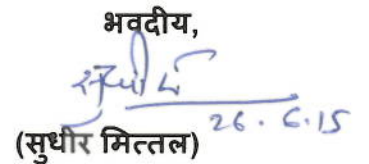 भवदीय,
सुधीर
26.6.15
(सुधीर मित्तल)